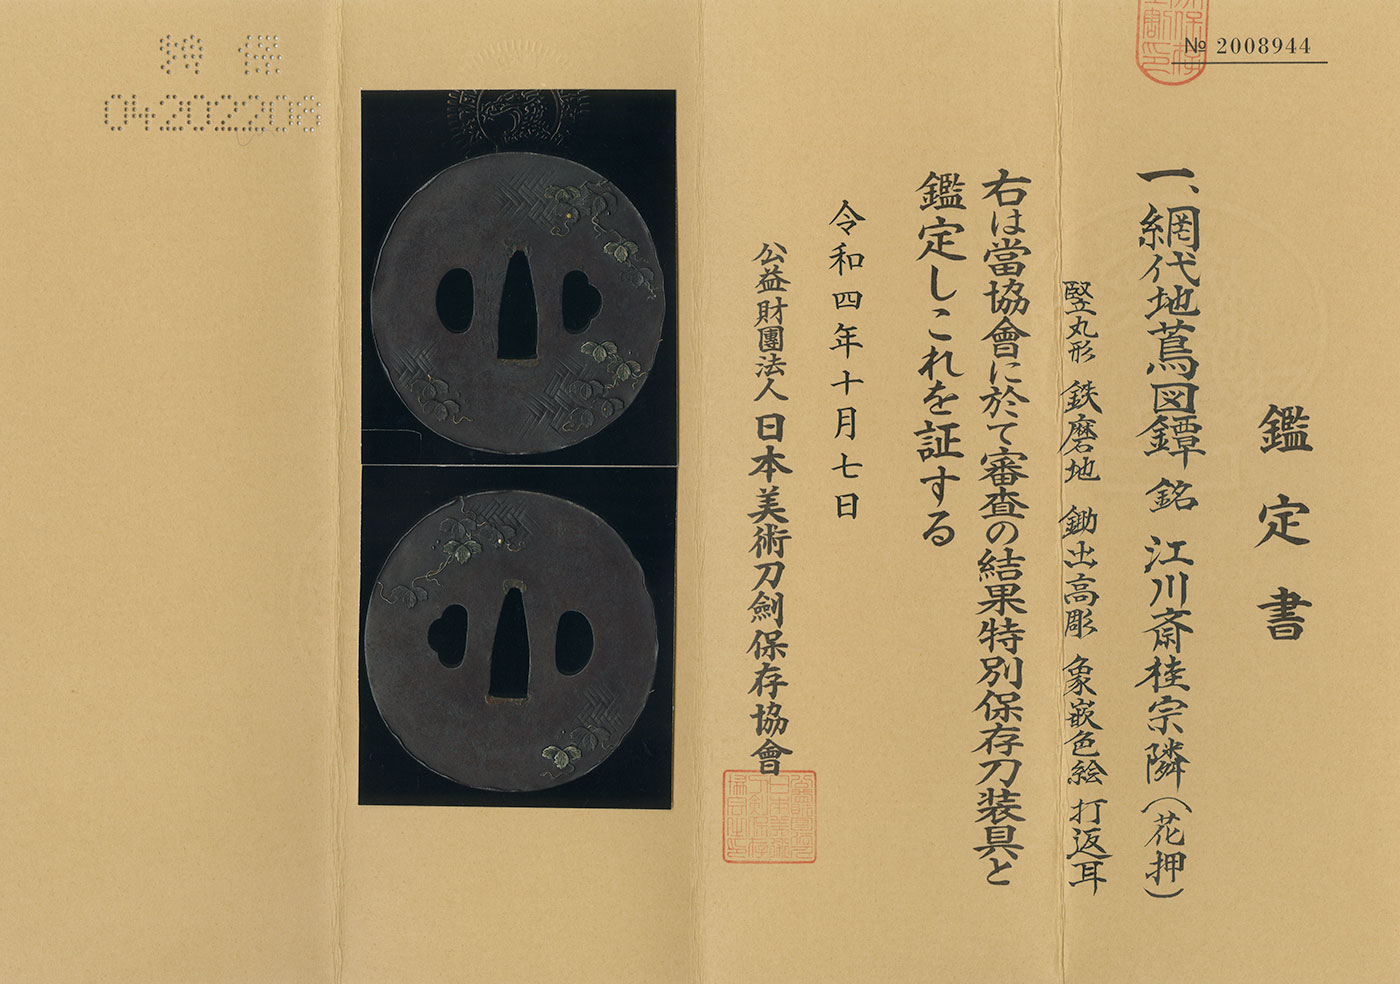 № 2008944
鑑定書
一、網代地蔦図鐔 銘 江川斎桂宗隣(花押)
竪丸形 鉄磨地 鋤出高彫 象嵌色絵 打返耳
右は當協會に於て審査の結果特別保存刀装具と
鑑定しこれを証する
令和四年十月七日
公益財團法人 日本美術刀劍保存協會
特 保
04202208